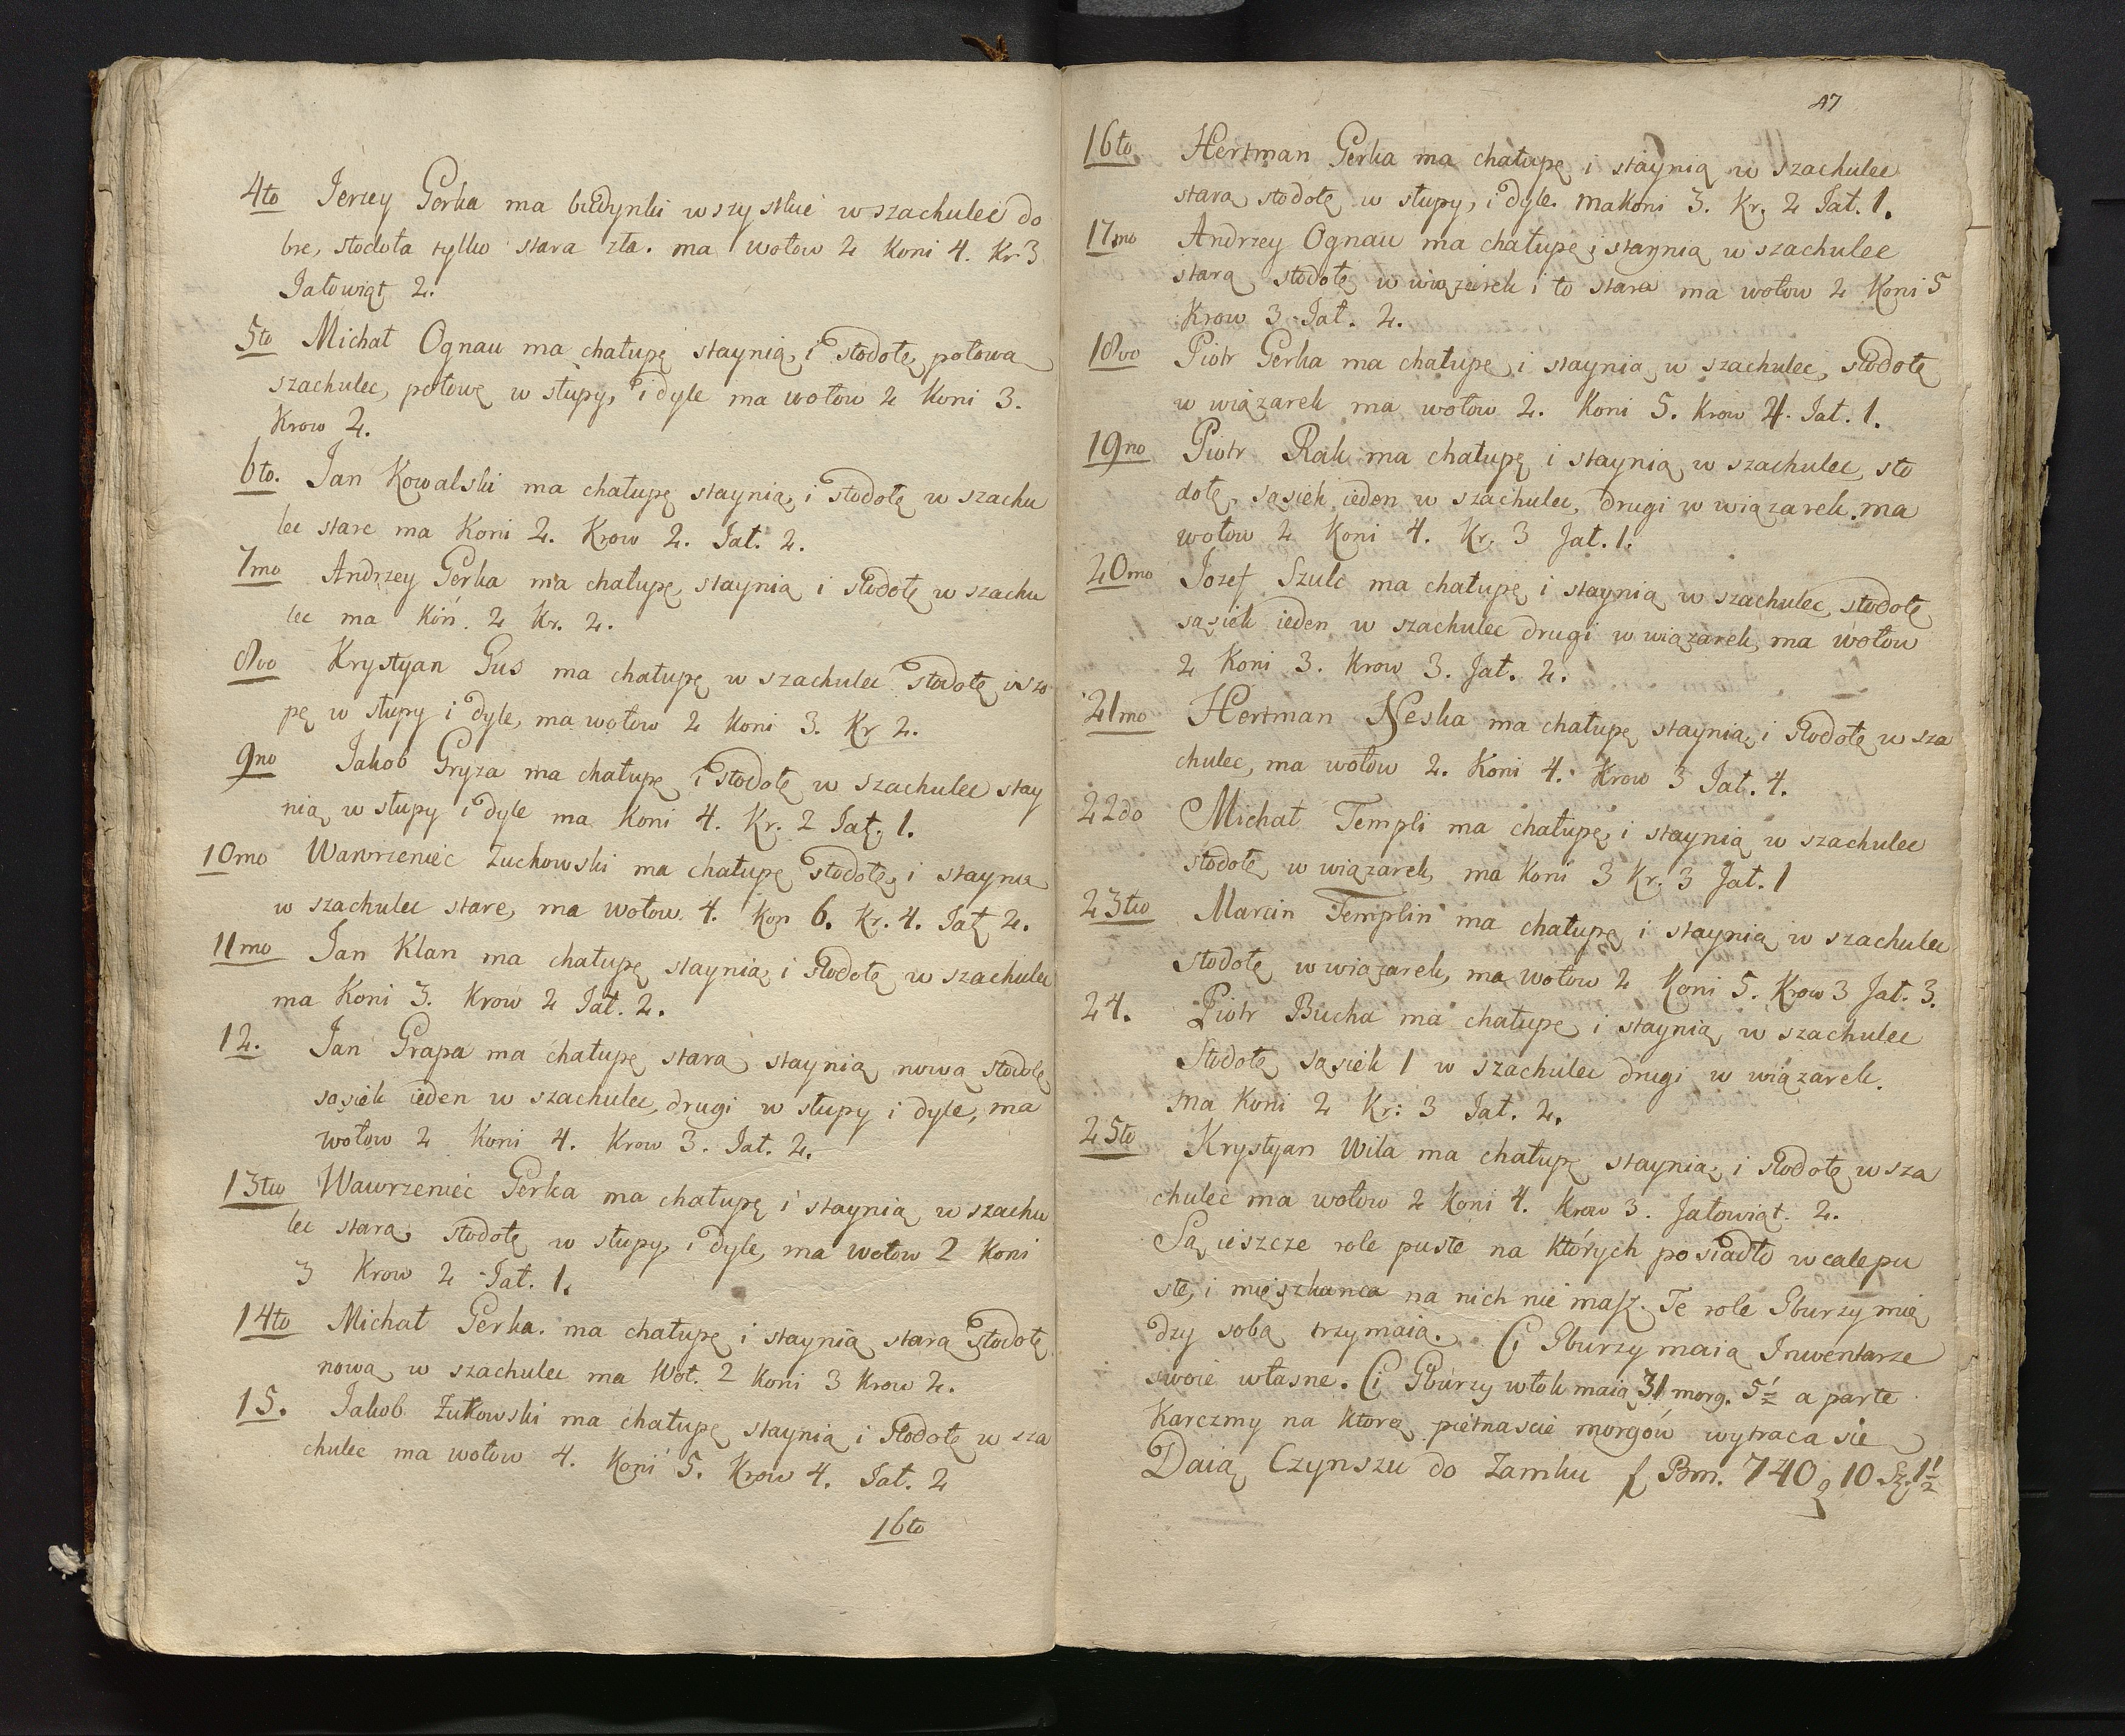 4to Jerzey Gerka ma budynki wszystkie w szachulec do
bre, stodoła tylko stara zła. ma wołow 2 Koni 4. Kr. 3
Jałowiąt 2.
5to Michał Ognau ma chałupę staynią, i stodołę, połowa
szachulec, połowę w słupy, i dyle ma wołow 2 Koni 3.
Krow 2.
6to. Jan Kowalski ma chałupę staynią, i stodołę w szachu
lec stare ma Koni 2. Krow 2. Jał. 2.
7mo Andrzey Gerka ma chałupę, staynią i stodołę w szachu
lec ma Koń. 2 Kr. 2.
8vo Krystyan Gus ma chałupę w szachulec stodołę i szo
pę w słupy i dyle, ma wołow 2 Koni 3. Kr 2.
9no Jakob Gryza ma chałupę i stodołę w szachulec stay
nią w słupy i dyle ma Koni 4. Kr. 2 Jał. 1.
10mo Wawrzeniec Zuchowski ma chałupę stodołę, i staynią
w szachulec stare, ma wołow 4. Kon 6. Kr. 4. Jał 2.
11mo Jan Klan ma chałupę staynią, i stodołę w szachulec
ma Koni 3. Krow 2 Jał. 2.
12. Jan Grapa ma chałupę starą staynią nową stodołę
sąsiek ieden w szachulec, drugi w słupy i dyle, ma
wołow 2 Koni 4. Krow 3. Jał. 2.
13tio Wawrzeniec Gerka ma chałupę i staynią w szachu
lec starą, stodołę w słupy, i dyle, ma wołow 2 Koni
3 Krow 2 Jał. 1.
14to Michał Gerka. ma chałupę i staynią starą stodołę
nową w szachulec ma Woł. 2 Koni 3 Krow 2.
15. Jakob Zutowski ma chałupę staynią i stodołę w sza
chulec ma wołow 4. Koni 5. Krow 4. Jał. 2
16to
47
16to Hertman Gerka ma chałupę i staynią w szachulec
starą stodołę w słupy, i dyle. ma Koni 3. Kr. 2 Jał. 1.
17mo Andrzey Ognau ma chałupę i staynią w szachulec
starą stodołę w wiązarek i to stara ma wołow 2 Koni 5
Krow 3 Jał. 2.
18vo Piotr Gerka ma chałupę i staynią w szachulec, stodołę
w wiązarek ma wołow 2. Koni 5. Krow 4. Jał. 1.
19no Piotr Rak ma chałupę i staynią w szachulec, sto
dołę, sąsiek ieden w szachulec, drugi w wiązarek. ma
wołow 2 Koni 4. Kr. 3 Jał. 1.
20mo Jozef Szulc ma chałupę i staynią w szachulec, stodołę
sąsiek ieden w szachulec drugi w wiązarek, ma wołow
2 Koni 3. Krow 3. Jał. 2.
21mo Hertman Neska ma chałupę staynią, i stodołę w sza
chulec, ma wołow 2. Koni 4. Krow 3 Jał. 4.
22do Michał Templi ma chałupę, i staynią w szachulec
stodołę w wiązarek, ma Koni 3 Kr. 3 Jał. 1
23tio Marcin Templin ma chałupę i staynią w szachulec
stodołę w wiązarek, ma wołow 2 Koni 5. Krow 3 Jał. 3.
24. Piotr Bucha ma chałupę i staynią w szachulec
Stodołę sąsiek 1 w szachulec drugi w wiązarek.
ma Koni 2 Kr: 3 Jał. 2.
25to Krystyan Wila ma chałupę staynią, i stodołę w sza
chulec ma wołow 2 Koni 4. Krow 3. Jałowiąt. 2.
Są ieszcze role puste na których posiadło wcale pu
ste, i mięszkańca na nich nie masz. Te role Gburzy mię
dzy sobą trzymaią. Ci Gburzy maią Inwentarze
swoie własne. Ci Gburzy włok maią 31 morg. 5½ a parte
Karczmy na którą pietnascie morgów wytraca się
Daią Czynszu do Zamku f Bm. 740 g 10 Sz. 1½